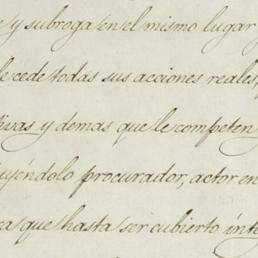 y subroga en el mismo lugar y
le cede todas sus acciones reales,
tivas y demas que le competen
uyéndolo procurador, actor en
ca que hasta ser cubierto ínte